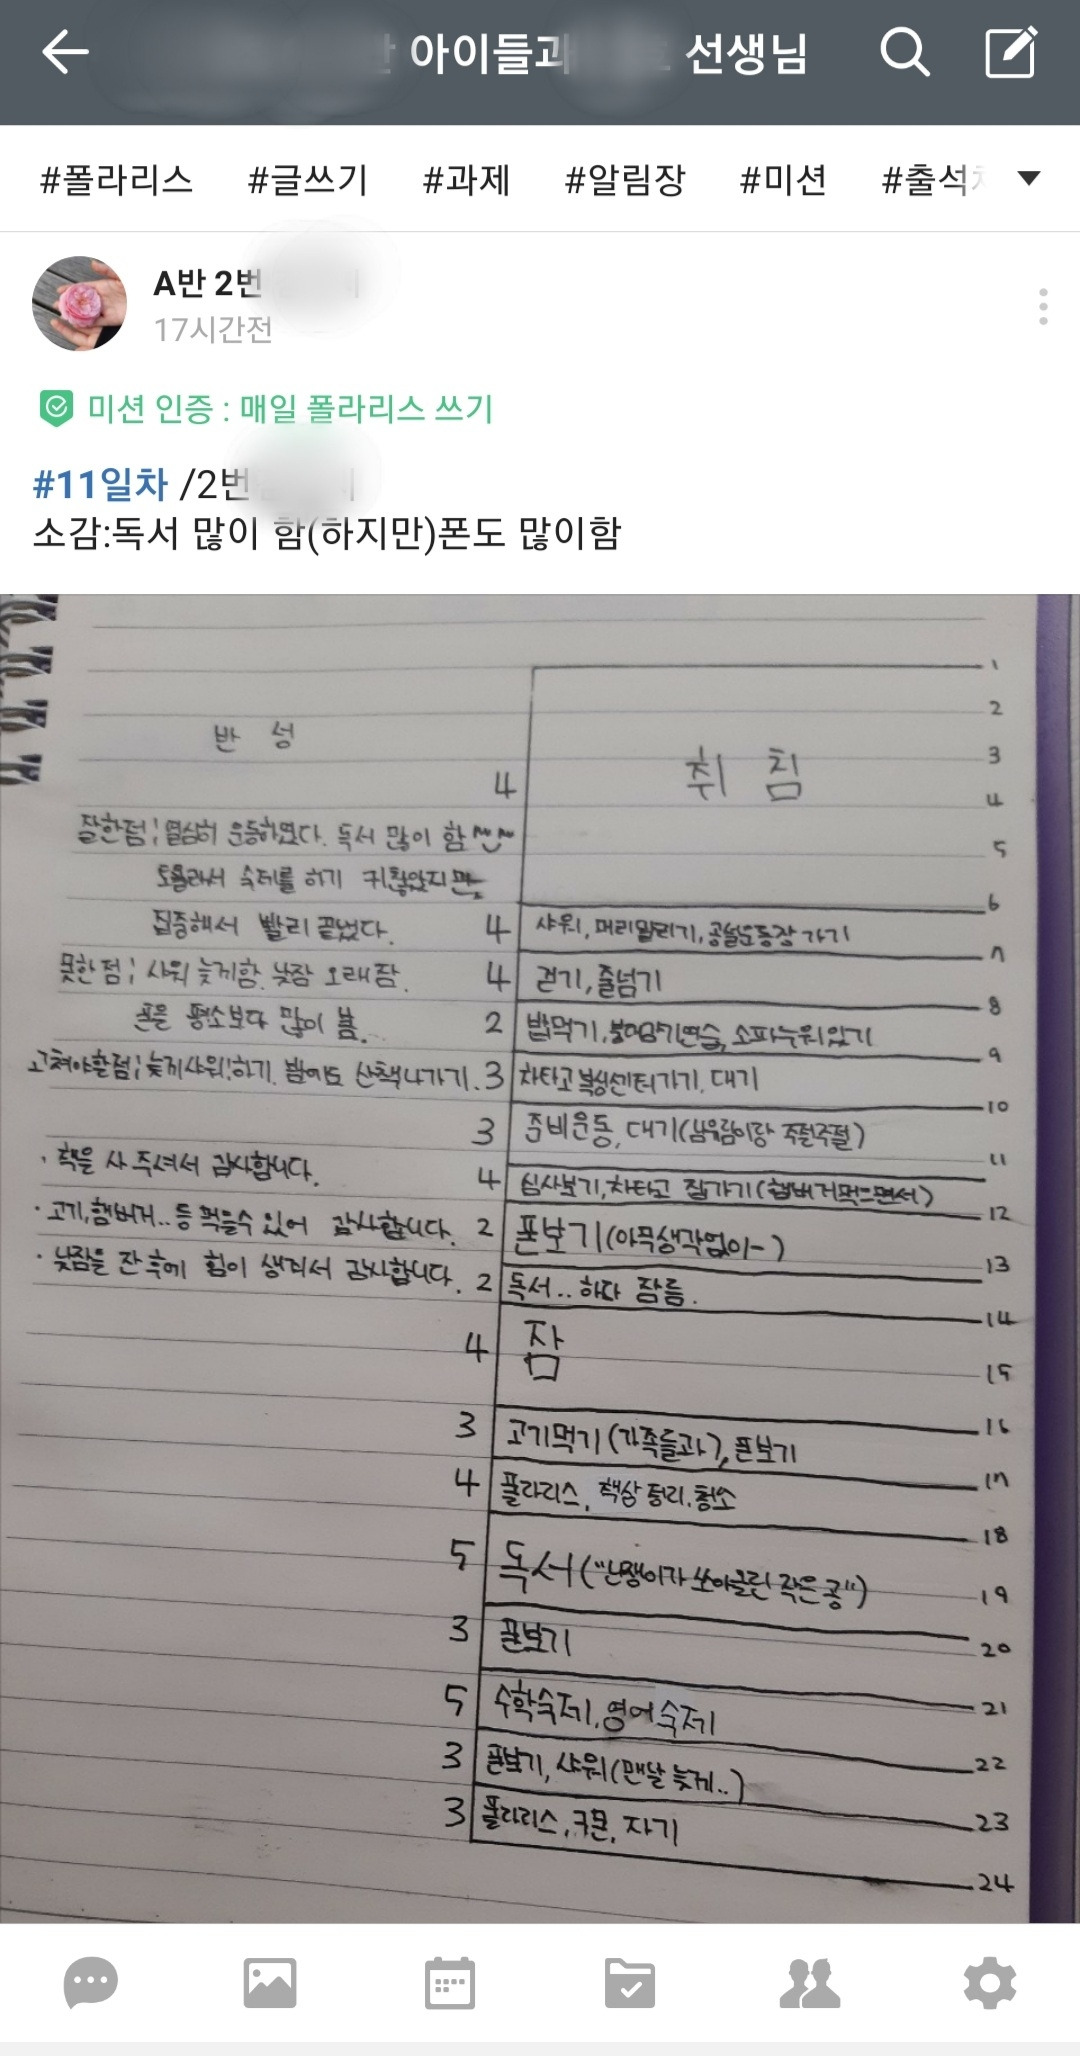 아이들과 선생님
#폴라리스 #글쓰기 #과제 #알림장 #미션 #출석
A반 2번
17시간전
미션 인증 : 매일 폴라리스 쓰기
#11일차 /2번
소감:독서 많이 함(하지만)폰도 많이함
반 성
잘한점; 열심히 운동하였다. 독서 많이 함
토욜라서 숙제를 하기 귀찮았지만
집중해서 빨리 끝냈다.
못한점; 샤워 늦게함. 낮잠 오래잠.
폰을 평소보다 많이 봄.
고쳐야할점; 늦지샤워!하기. 밤에도 산책나가기.
· 책을 사 주셔서 감사합니다.
· 고기, 햄버거.. 등 먹을수 있어 감사합니다.
· 낮잠을 잔 후에 힘이 생겨서 감사합니다.
1
2
4 취 침 3
4
5
6
4 샤워, 머리말리기, 공설운동장 가기 7
4 걷기, 줄넘기 8
2 밥먹기, 연습, 소파누워있기 9
3 차타고 가기. 대기 10
3 준비운동, 대기( 주절주절) 11
4 심사보기, 차타고 집가기(햄버거먹으면서) 12
2 폰보기(아무생각없이-) 13
2 독서.. 하다 잠듬. 14
4 잠 15
16
3 고기먹기(가족들과), 폰보기 17
4 폴라리스, 책상 정리. 청소 18
5 독서("난쟁이가 쏘아올린 작은 공") 19
20
3 폰보기 21
5 수학숙제, 영어숙제 22
3 폰보기, 샤워(맨날 늦게..) 23
3 폴라리스, 구몬, 자기 24